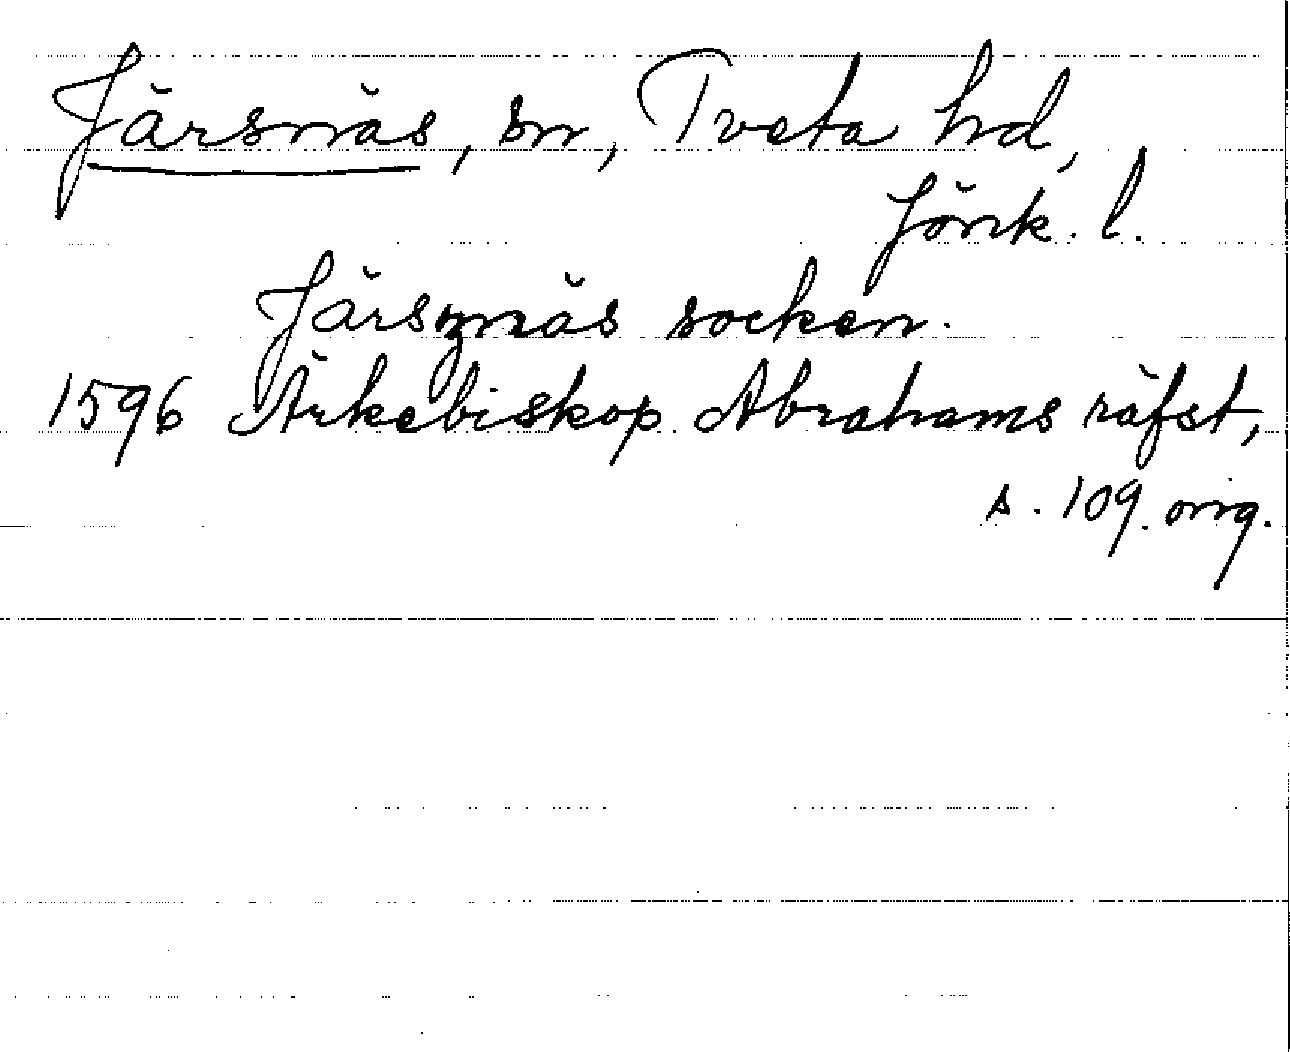 Järsnäs, sn, Tveta hd,
Jönk. l.
Järsznäs socken.
1596 Ärkebiskop Abrahams räfst,
s. 109. orig.